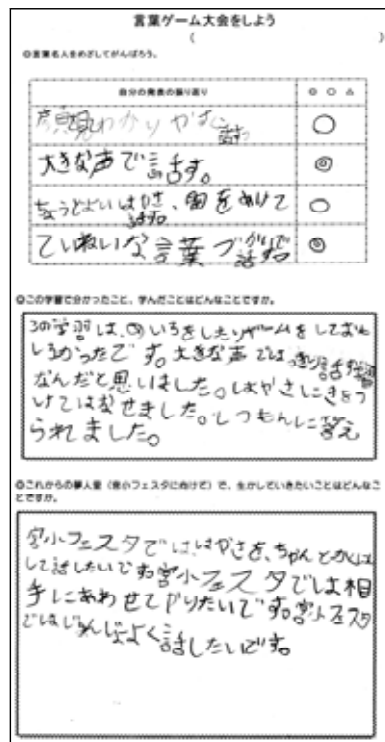 言葉ゲーム大会をしよう
( )
◎言葉名人をめざしてがんばろう。
自分の発表の振り返り ◎ ○ △
わかりやすく話す ○
大きな声で話す。 ◎
ちょうどよいはやさ、間をあけて話す。 ○
ていねいな言葉づかいで話す ◎
◎この学習で分かったこと、学んだことはどんなことですか。
この学習は、いろをしたりゲームをしておも
しろかったです。大きな声では話す
なんだと思いました。はやさにきをつ
けてはなせました。しつもんに答え
られました。
◎これからの夢人星(宮小フェスタに向けて)で、生かしていきたいことはどんなこ
とですか。
宮小フェスタでは、はやさを、ちゃんと
して話したいです。宮小フェスタでは相
手にあわせてやりたいです。宮小フェスタ
ではじゅんじょよく話したいです。